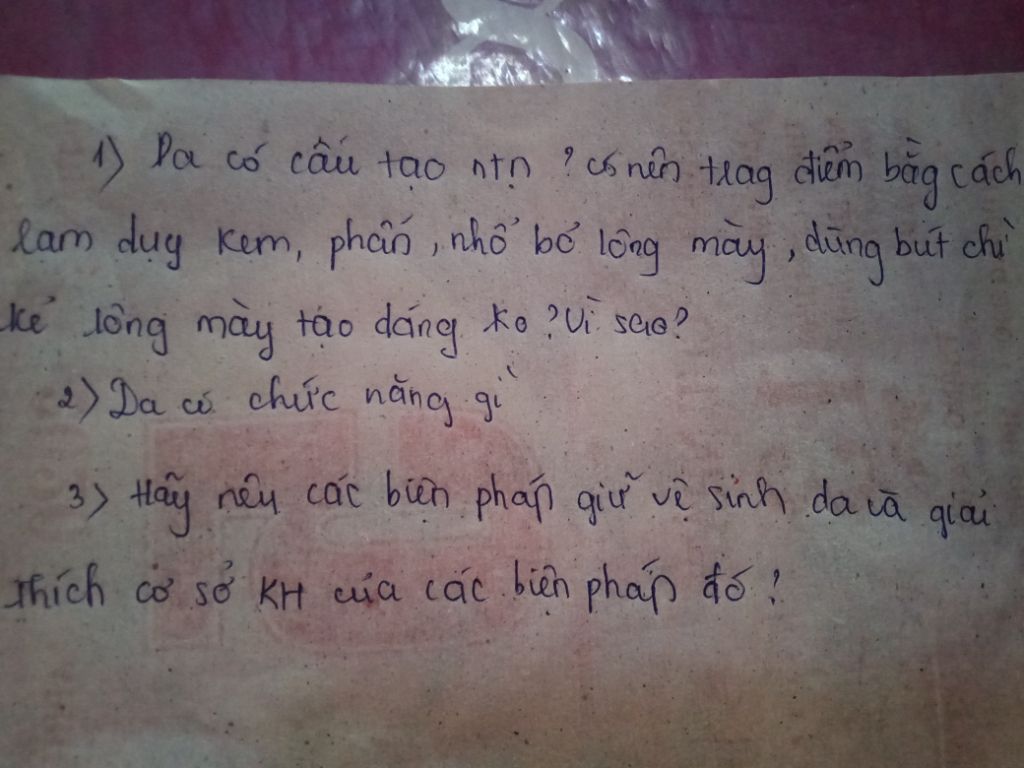 1) Da có cấu tạo ntn? có nên trag điểm bằg cách
lam dụg kem, phấn, nhổ bỏ lông mày, dùng bút chì
kẻ lông mày tạo dáng ko? Vì sao?
2) Da có chức năng gì
3) Hãy nêu các biện pháp giữ vệ sinh da và giải
thích cơ sở KH của các biện pháp đó?